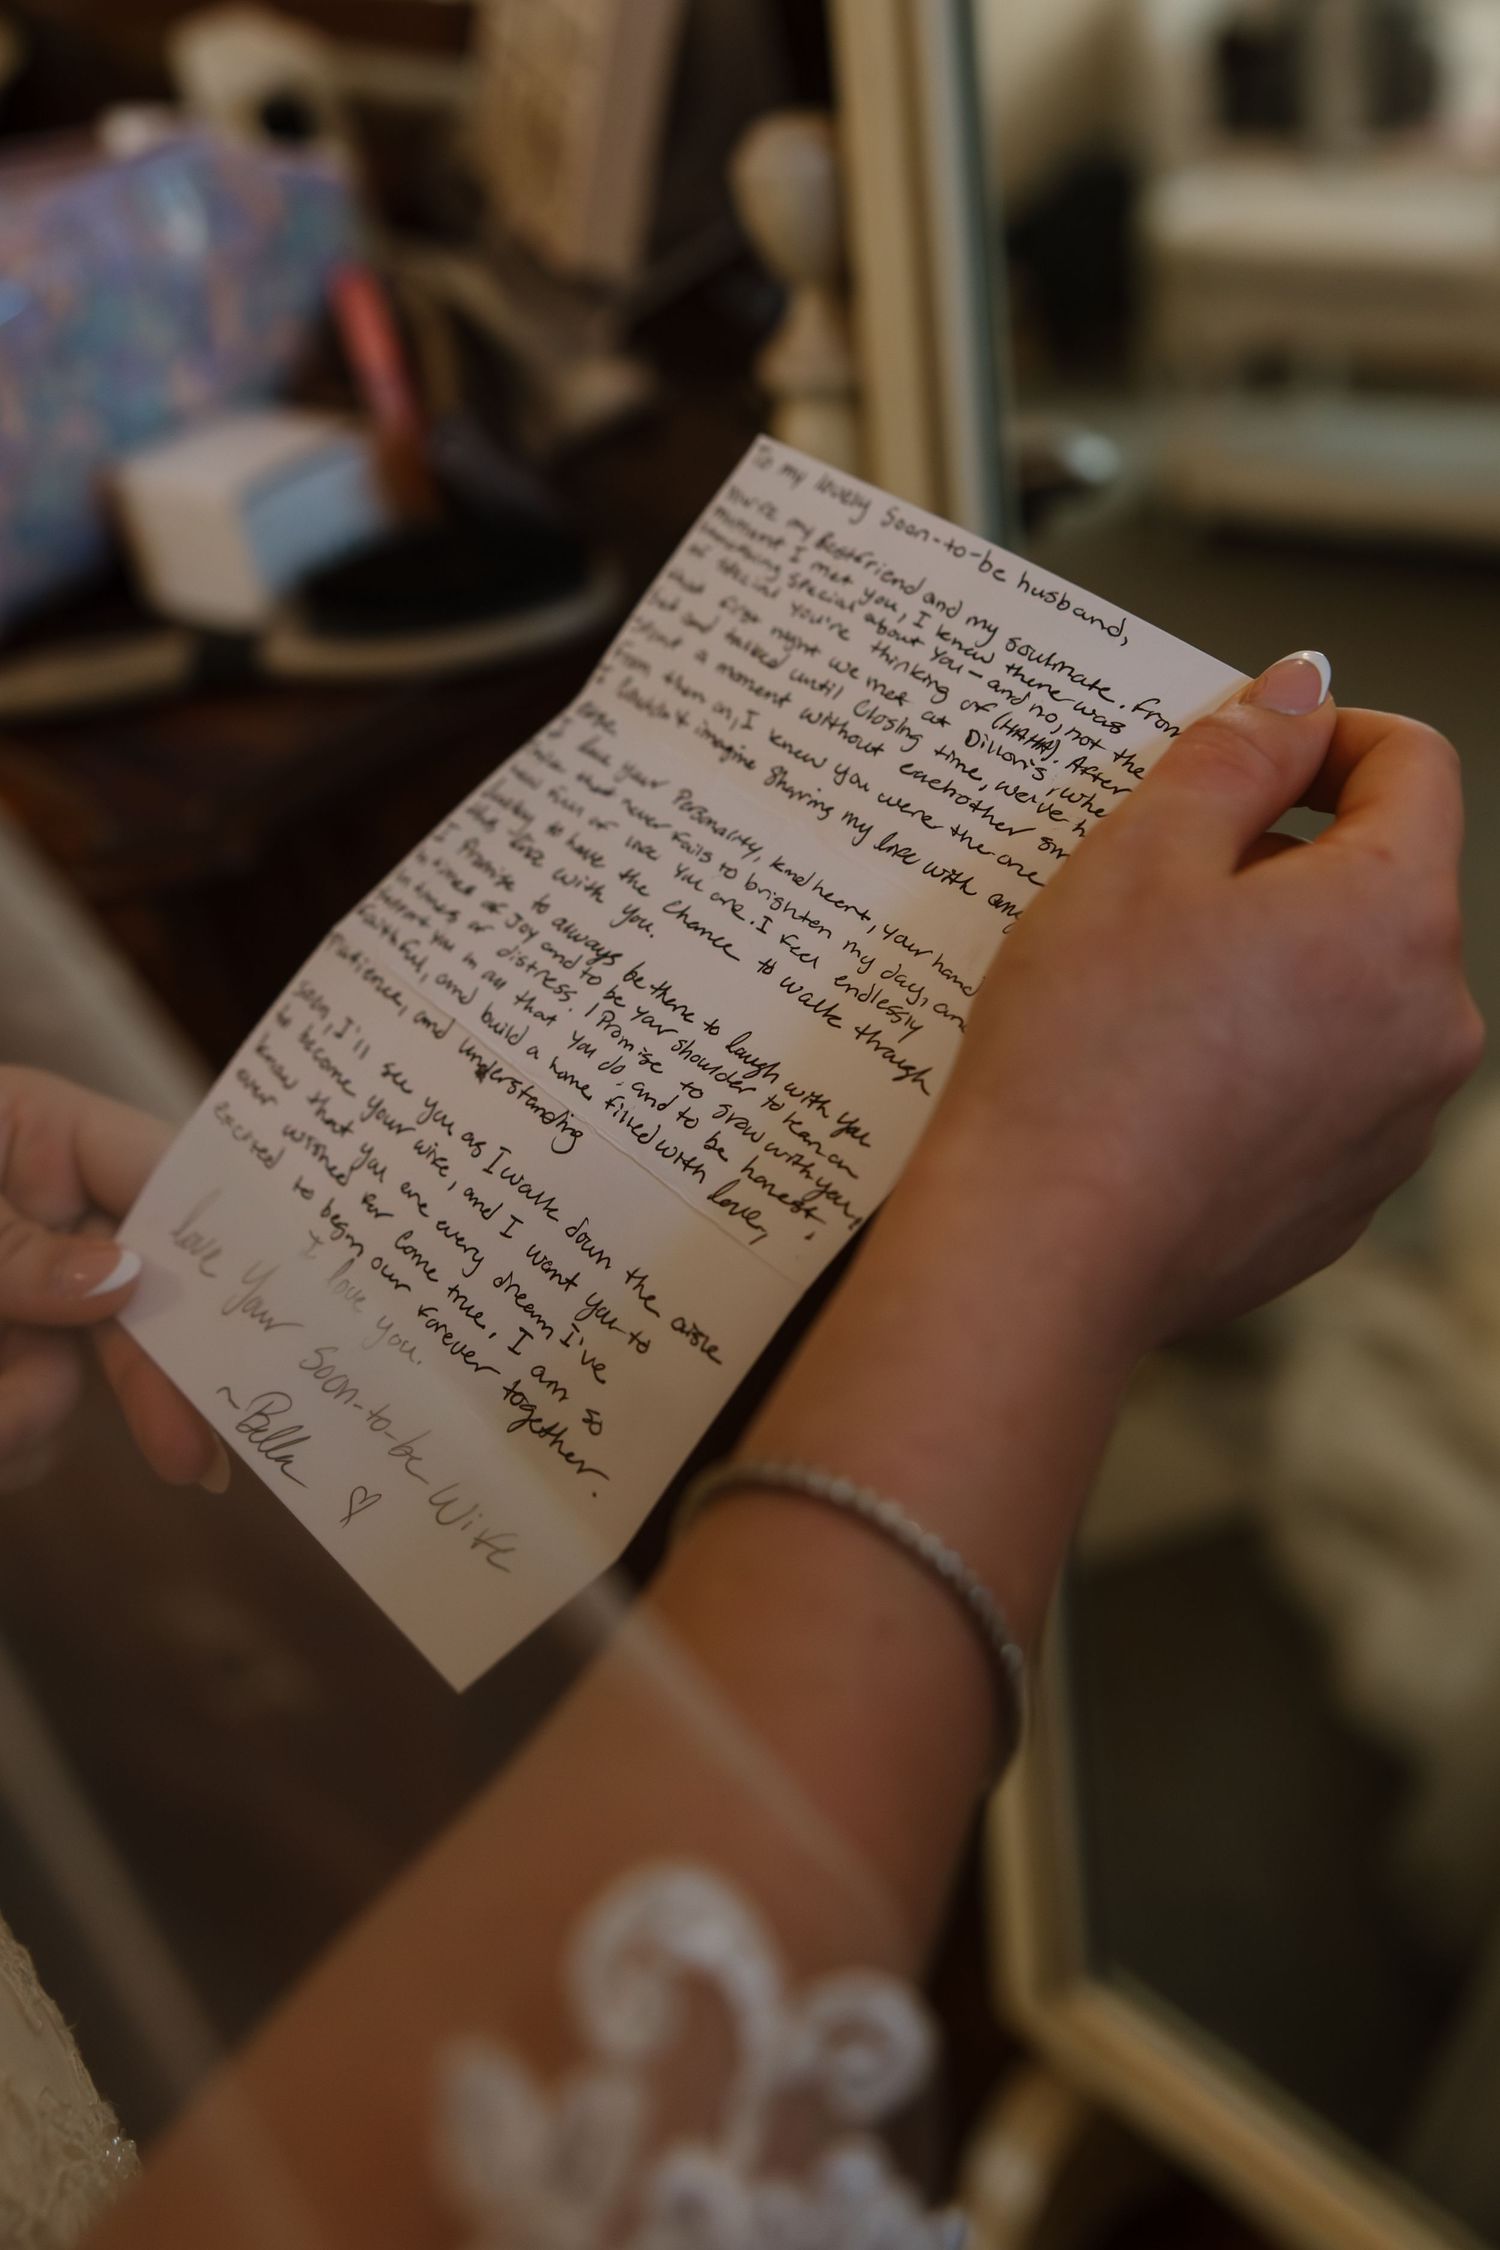 To my lovely soon-to-be husband,
You're my Bestfriend and my soulmate. From
moment I met you, I knew there was
something special about you - and no, not the
of special you're thinking of (HAHA). After
that first night we met at Dillon's, whe
sat and talked until closing time, we've h
spent a moment without eachother sin
From then on, I knew you were the one
I couldn't imagine sharing my life with any
else.
I love your Personality, kind heart, your hand
that never fails to brighten my day, and
full of love you are. I feel endlessly
lucky to have the chance to walk through
this life with you.
I Promise to always be there to laugh with you
in times of joy and to be your shoulder to lean on
in times of distress. I Promise to grow with you,
support you in all that you do, and to be honest,
faithful, and build a home filled with love,
Patience, and understanding
Soon, I'll see you as I walk down the aisle
to become your wife, and I want you to
know that you are every dream I've
ever wished for come true. I am so
excited to begin our forever together.
I love you.
Love Your Soon-to-be Wife
~Bella ♡